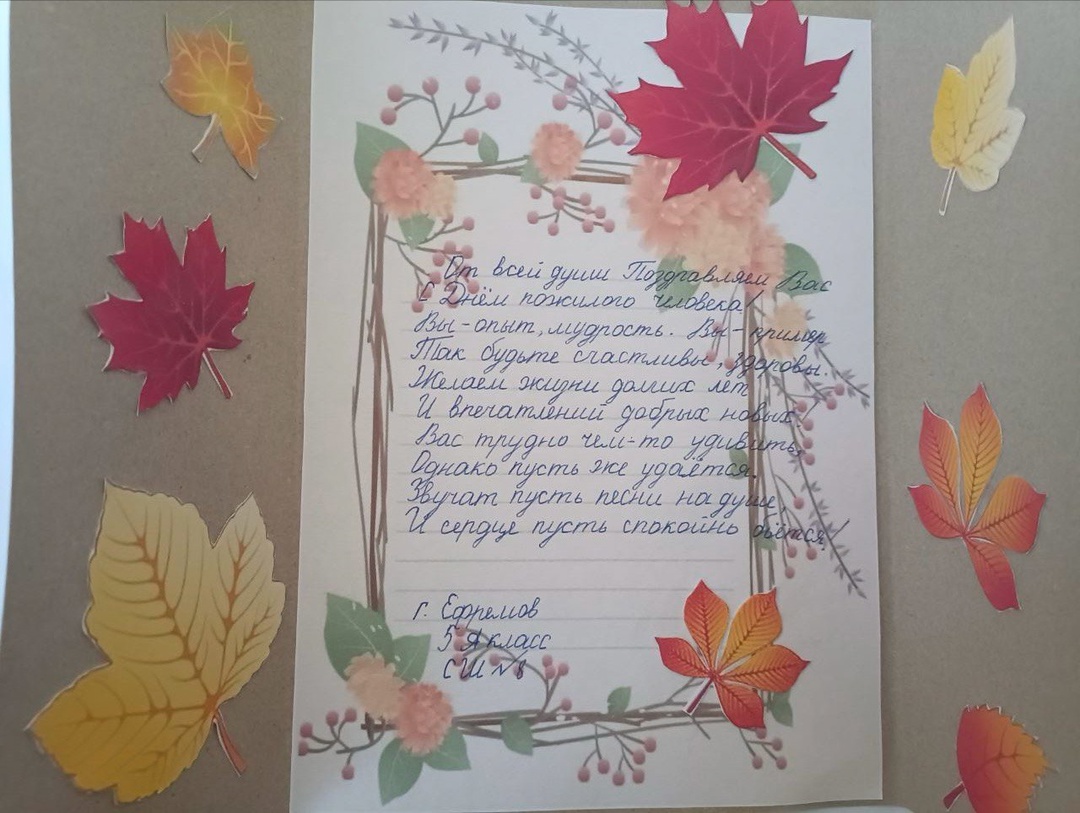 От всей души Поздравляем Вас
С Днём пожилого человека!
Вы-опыт, мудрость. Вы-пример
Так будьте счастливы, здоровы.
Желаем жизни долгих лет
И впечатлений добрых новых.
Вас трудно чем-то удивить,
Однако пусть же удаётся.
Звучат пусть песни на душе,
И сердце пусть спокойно бьётся!
г. Ефремов
5 А класс
СШ №8